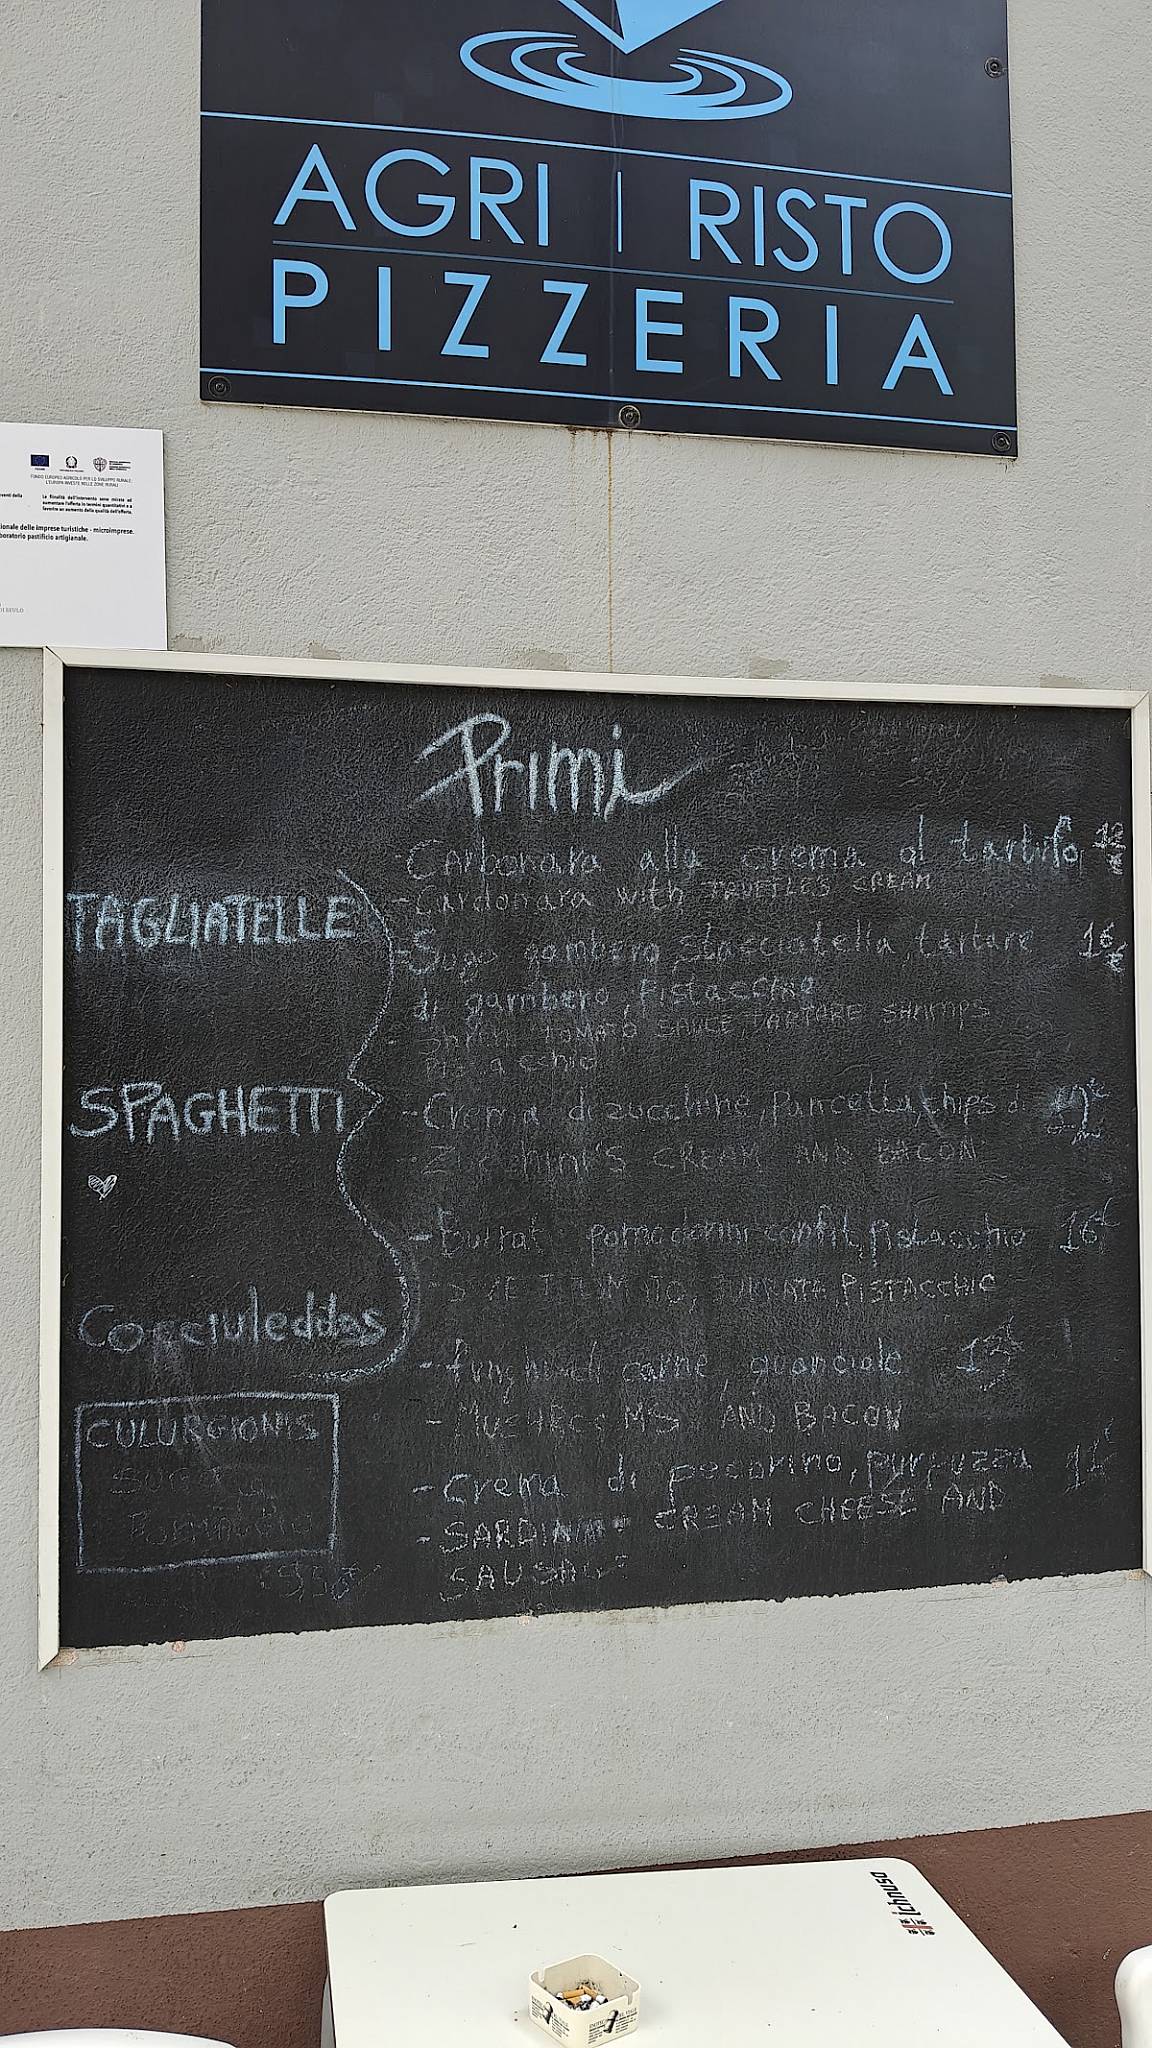 AGRI | RISTO
PIZZERIA
FONDO EUROPEO AGRICOLO PER LO SVILUPPO RURALE:
L'EUROPA INVESTE NELLE ZONE RURALI
Le finalità dell'intervento sono mirate ad
aumentare l'offerta in termini quantitativi e a
favorire un aumento della qualità dell'offerta.
ionale delle imprese turistiche - microimprese.
boratorio pastificio artigianale.
Primi
TAGLIATELLE
SPAGHETTI
Copciuleddas
CULURGIONIS
SUGO
FORMAGGIO
- Carbonara alla crema al tartufo 12 €
- Cardonara with TRUFFLES CREAM
- Sugo gambero, stracciatella, tartare 16 €
di gambero, Pistacchio
- TOMATO SAUCE, TARTARE SHRIMPS
Pistacchio
- Crema di zucchine, pancetta, chips di
- Zucchini'S CREAM AND BACON
- burrat pomodorini confit, pistacchio 16€
TOM TO, BURRATA PISTACCHIO
- funghi di carne, guanciale 12€
- MUSHROOMS AND BACON
- Crema di pecorino, purpuzza
- SARDINIA CREAM CHEESE AND
SAUSAGE
ichnusa